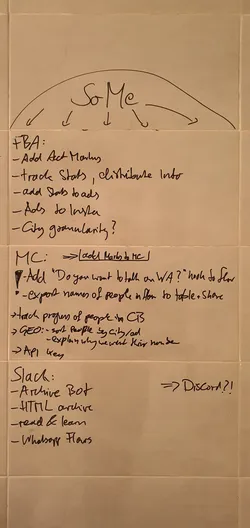 SoMe
FBA:
- Add Act Markus
- track Stats, distribute Info
- add Stats to ads
- Ads to Insta
- City granularity?
MC: => add Markus to MC
- Add "Do you want to talk on WA?" node to flow
- export names of people in flow to table + share
-> track progress of people in CB
-> GEO: - sort people by City/ad
- explain why we want their number
-> API key
Slack:
- Archive Bot
- HTML archive
- read & learn
- Whatsapp Flows
=> Discord?!